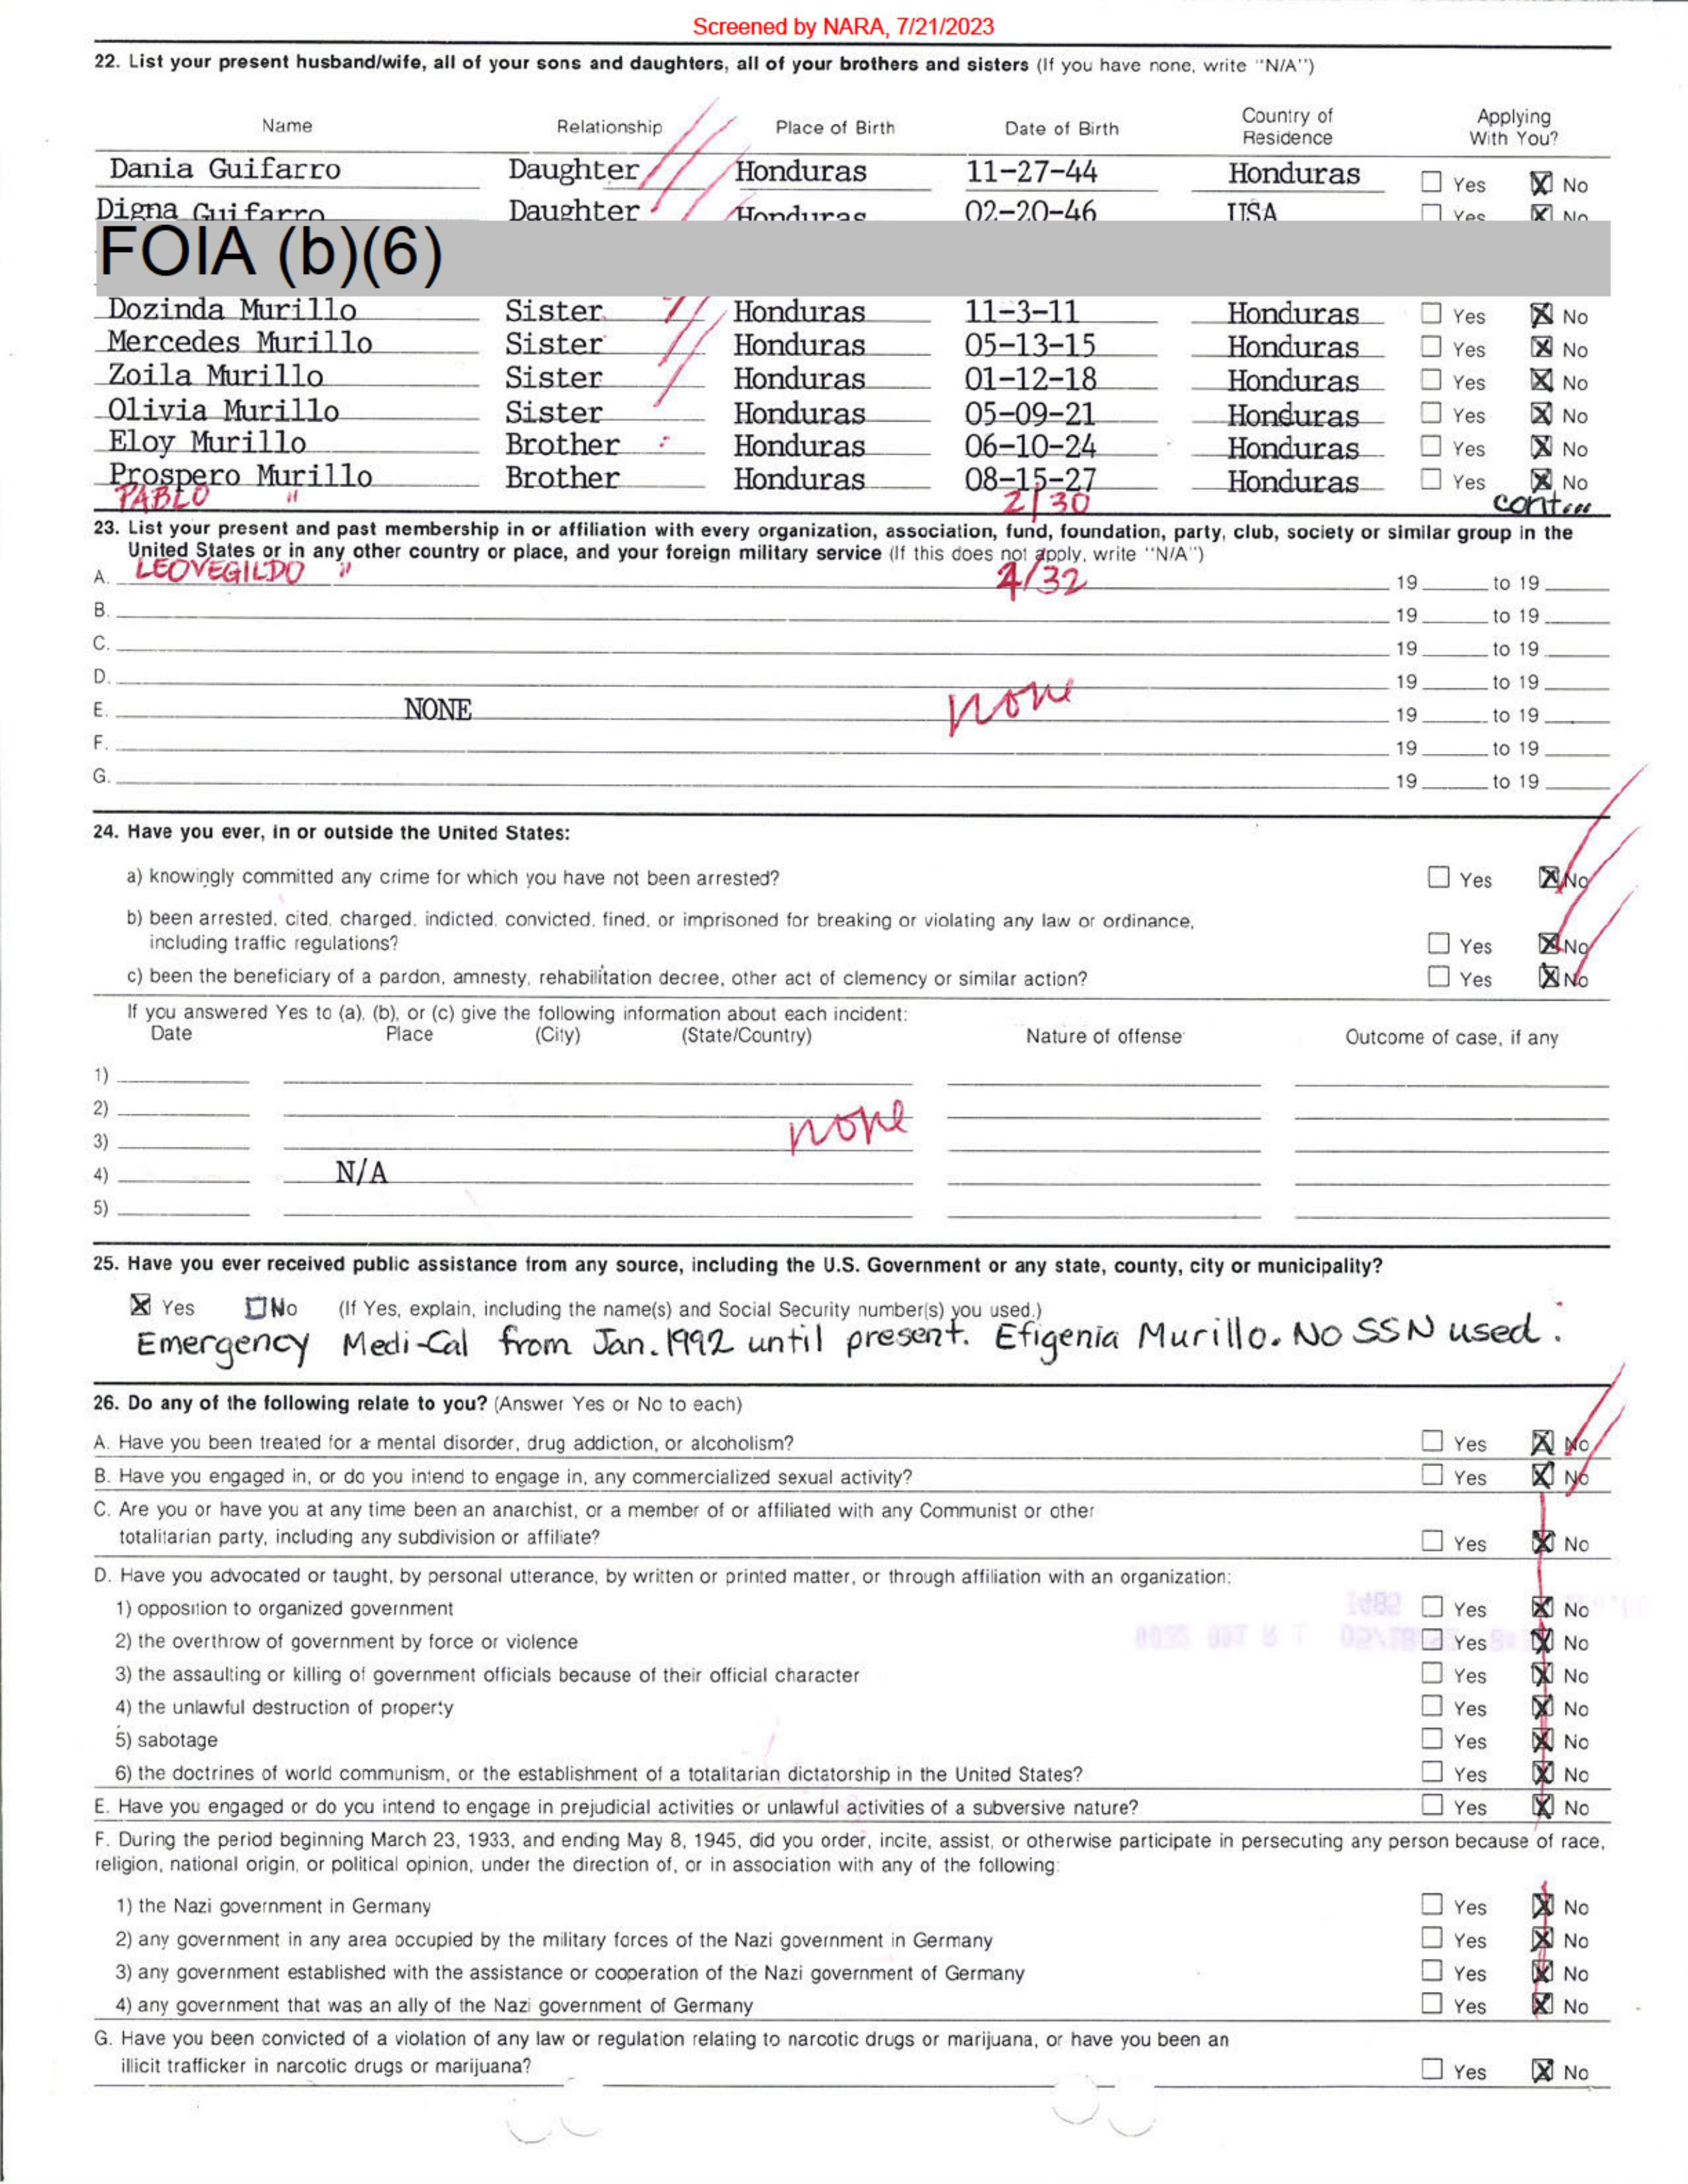 Screened by NARA, 7/21/2023
22. List your present husband/wife, all of your sons and daughters, all of your brothers and sisters (If you have none, write "N/A")
Name Relationship Place of Birth Date of Birth Country of Residence Applying With You?
Dania Guifarro Daughter Honduras 11-27-44 Honduras ☐ Yes ☒ No
Digna Guifarro Daughter Honduras 02-20-46 USA ☐ Yes ☒ No
FOIA (b)(6)
Dozinda Murillo Sister Honduras 11-3-11 Honduras ☐ Yes ☒ No
Mercedes Murillo Sister Honduras 05-13-15 Honduras ☐ Yes ☒ No
Zoila Murillo Sister Honduras 01-12-18 Honduras ☐ Yes ☒ No
Olivia Murillo Sister Honduras 05-09-21 Honduras ☐ Yes ☒ No
Eloy Murillo Brother Honduras 06-10-24 Honduras ☐ Yes ☒ No
Prospero Murillo Brother Honduras 08-15-27 Honduras ☐ Yes ☒ No
PABLO " 2/30 cont...
23. List your present and past membership in or affiliation with every organization, association, fund, foundation, party, club, society or similar group in the
United States or in any other country or place, and your foreign military service (If this does not apply, write "N/A")
A. LEOVEGILDO " 4/32 19 to 19
B. 19 to 19
C. 19 to 19
D. 19 to 19
E. NONE none 19 to 19
F. 19 to 19
G. 19 to 19
24. Have you ever, in or outside the United States:
a) knowingly committed any crime for which you have not been arrested? ☐ Yes ☒ No
b) been arrested, cited, charged, indicted, convicted, fined, or imprisoned for breaking or violating any law or ordinance,
including traffic regulations? ☐ Yes ☒ No
c) been the beneficiary of a pardon, amnesty, rehabilitation decree, other act of clemency or similar action? ☐ Yes ☒ No
If you answered Yes to (a), (b), or (c) give the following information about each incident:
Date Place (City) (State/Country) Nature of offense Outcome of case, if any
1)
2)
3) none
4) N/A
5)
25. Have you ever received public assistance from any source, including the U.S. Government or any state, county, city or municipality?
☒ Yes ☐ No (If Yes, explain, including the name(s) and Social Security number(s) you used.)
Emergency Medi-Cal from Jan. 1992 until present. Efigenia Murillo. No SSN used.
26. Do any of the following relate to you? (Answer Yes or No to each)
A. Have you been treated for a mental disorder, drug addiction, or alcoholism? ☐ Yes ☒ No
B. Have you engaged in, or do you intend to engage in, any commercialized sexual activity? ☐ Yes ☒ No
C. Are you or have you at any time been an anarchist, or a member of or affiliated with any Communist or other
totalitarian party, including any subdivision or affiliate? ☐ Yes ☒ No
D. Have you advocated or taught, by personal utterance, by written or printed matter, or through affiliation with an organization:
1) opposition to organized government ☐ Yes ☒ No
2) the overthrow of government by force or violence ☐ Yes ☒ No
3) the assaulting or killing of government officials because of their official character ☐ Yes ☒ No
4) the unlawful destruction of property ☐ Yes ☒ No
5) sabotage ☐ Yes ☒ No
6) the doctrines of world communism, or the establishment of a totalitarian dictatorship in the United States? ☐ Yes ☒ No
E. Have you engaged or do you intend to engage in prejudicial activities or unlawful activities of a subversive nature? ☐ Yes ☒ No
F. During the period beginning March 23, 1933, and ending May 8, 1945, did you order, incite, assist, or otherwise participate in persecuting any person because of race,
religion, national origin, or political opinion, under the direction of, or in association with any of the following:
1) the Nazi government in Germany ☐ Yes ☒ No
2) any government in any area occupied by the military forces of the Nazi government in Germany ☐ Yes ☒ No
3) any government established with the assistance or cooperation of the Nazi government of Germany ☐ Yes ☒ No
4) any government that was an ally of the Nazi government of Germany ☐ Yes ☒ No
G. Have you been convicted of a violation of any law or regulation relating to narcotic drugs or marijuana, or have you been an
illicit trafficker in narcotic drugs or marijuana? ☐ Yes ☒ No